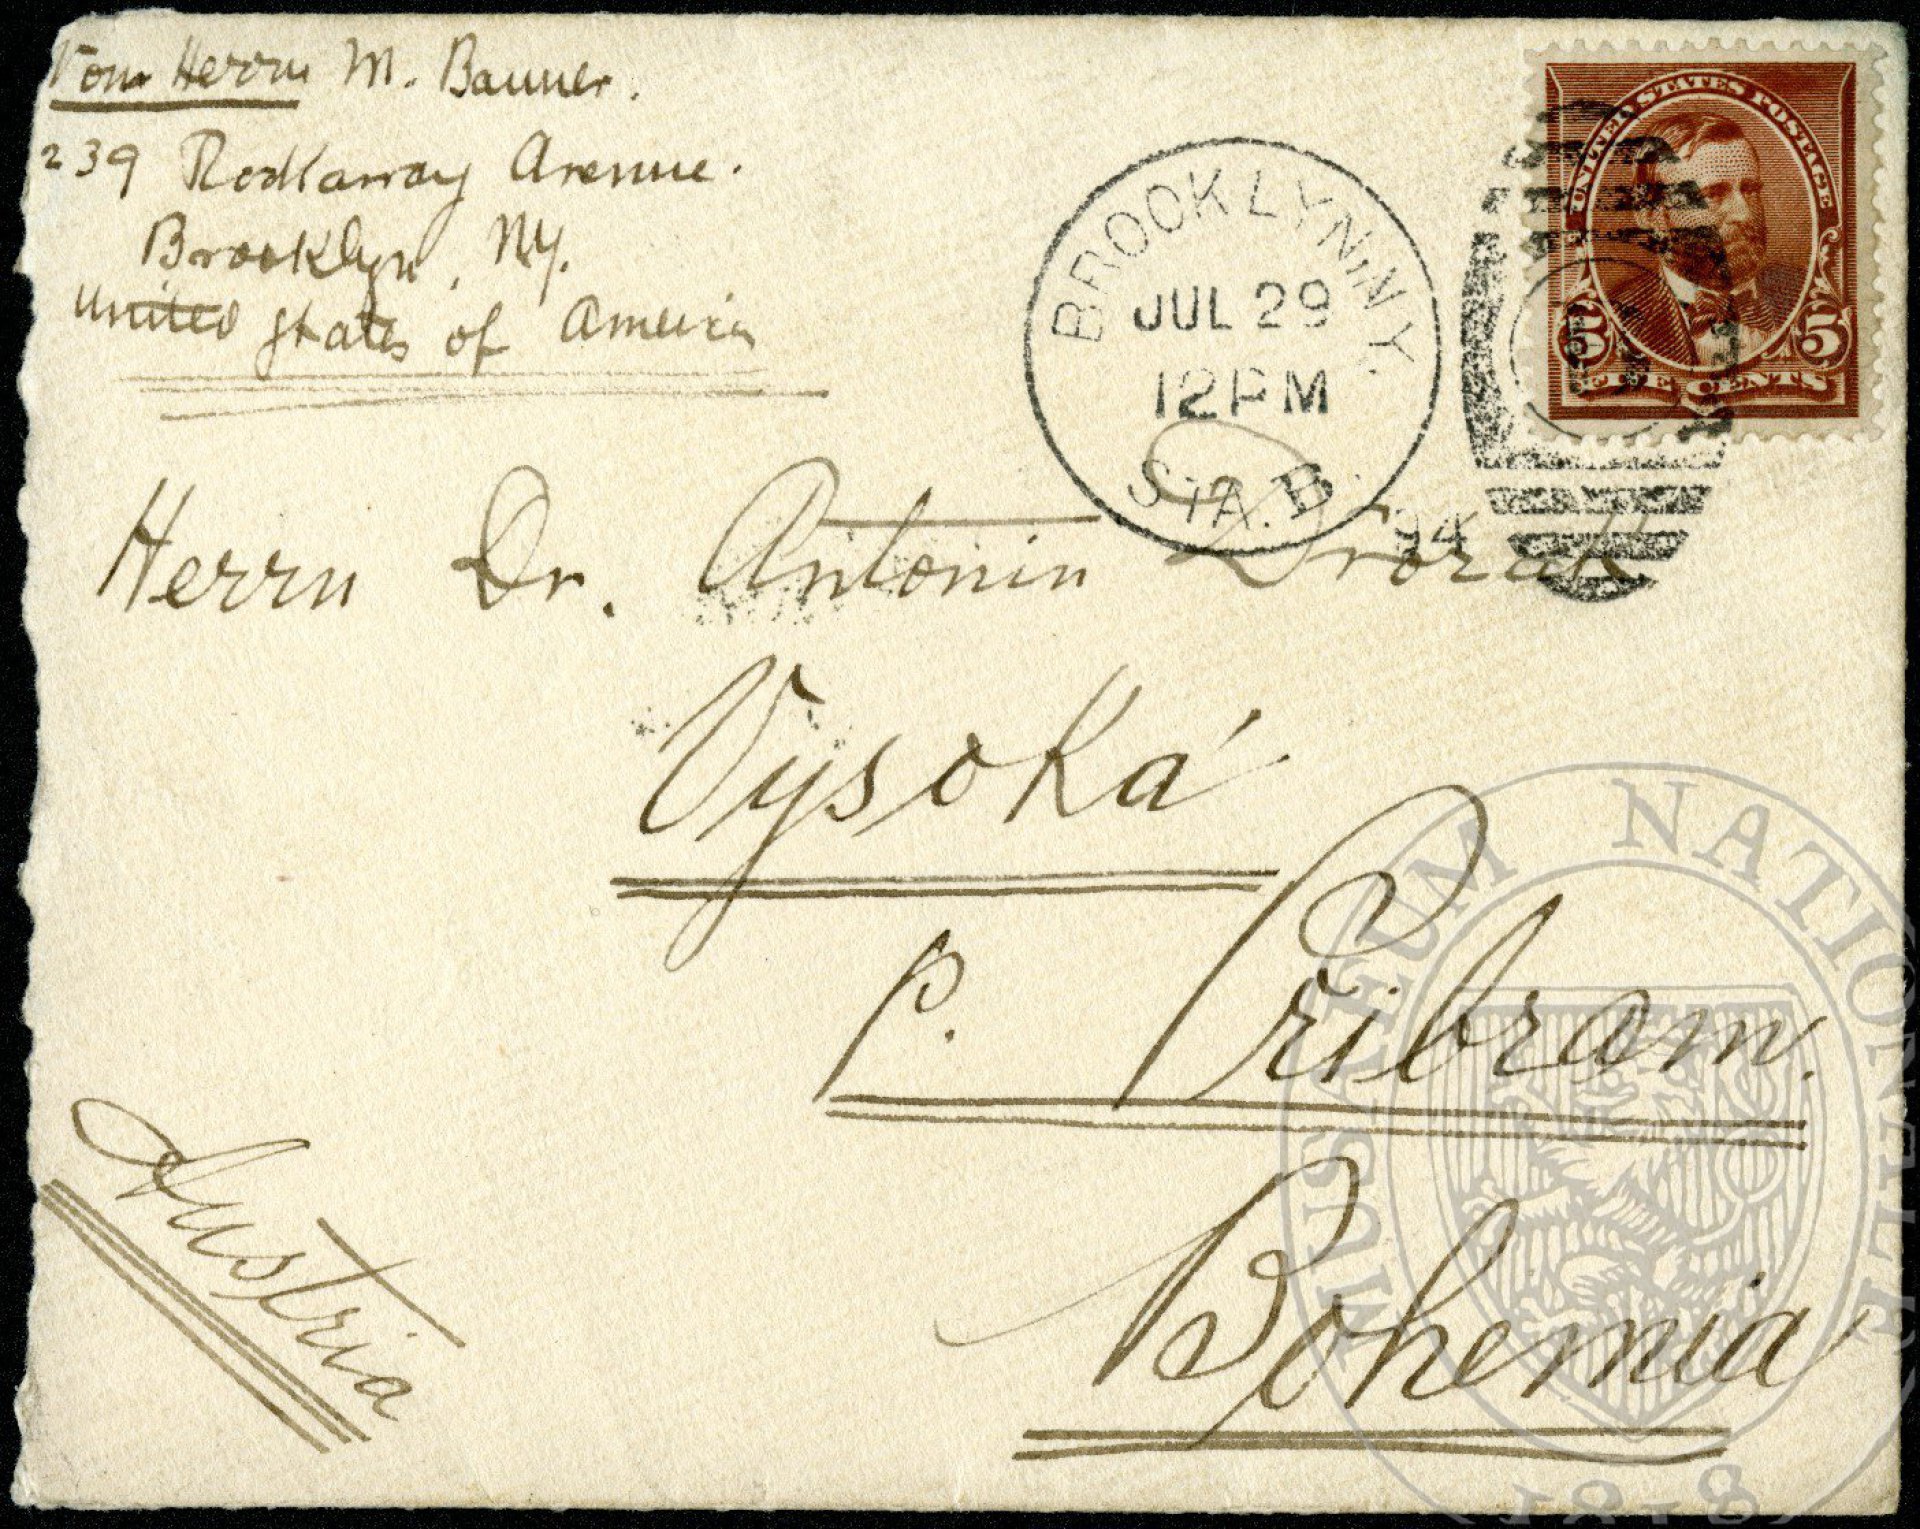 Vom Herrn M. Banner.
239 Rockaway Avenue.
Brooklyn, NY.
United States of America
BROOKLYN, N.Y.
JUL 29
12 PM
STA. B.
94
UNITED STATES POSTAGE
5 5
FIVE CENTS
Herrn Dr. Antonin Dvorak
Vysoká
p. Pribram.
Bohemia
Austria
MUSAEUM NATIONALE
1818